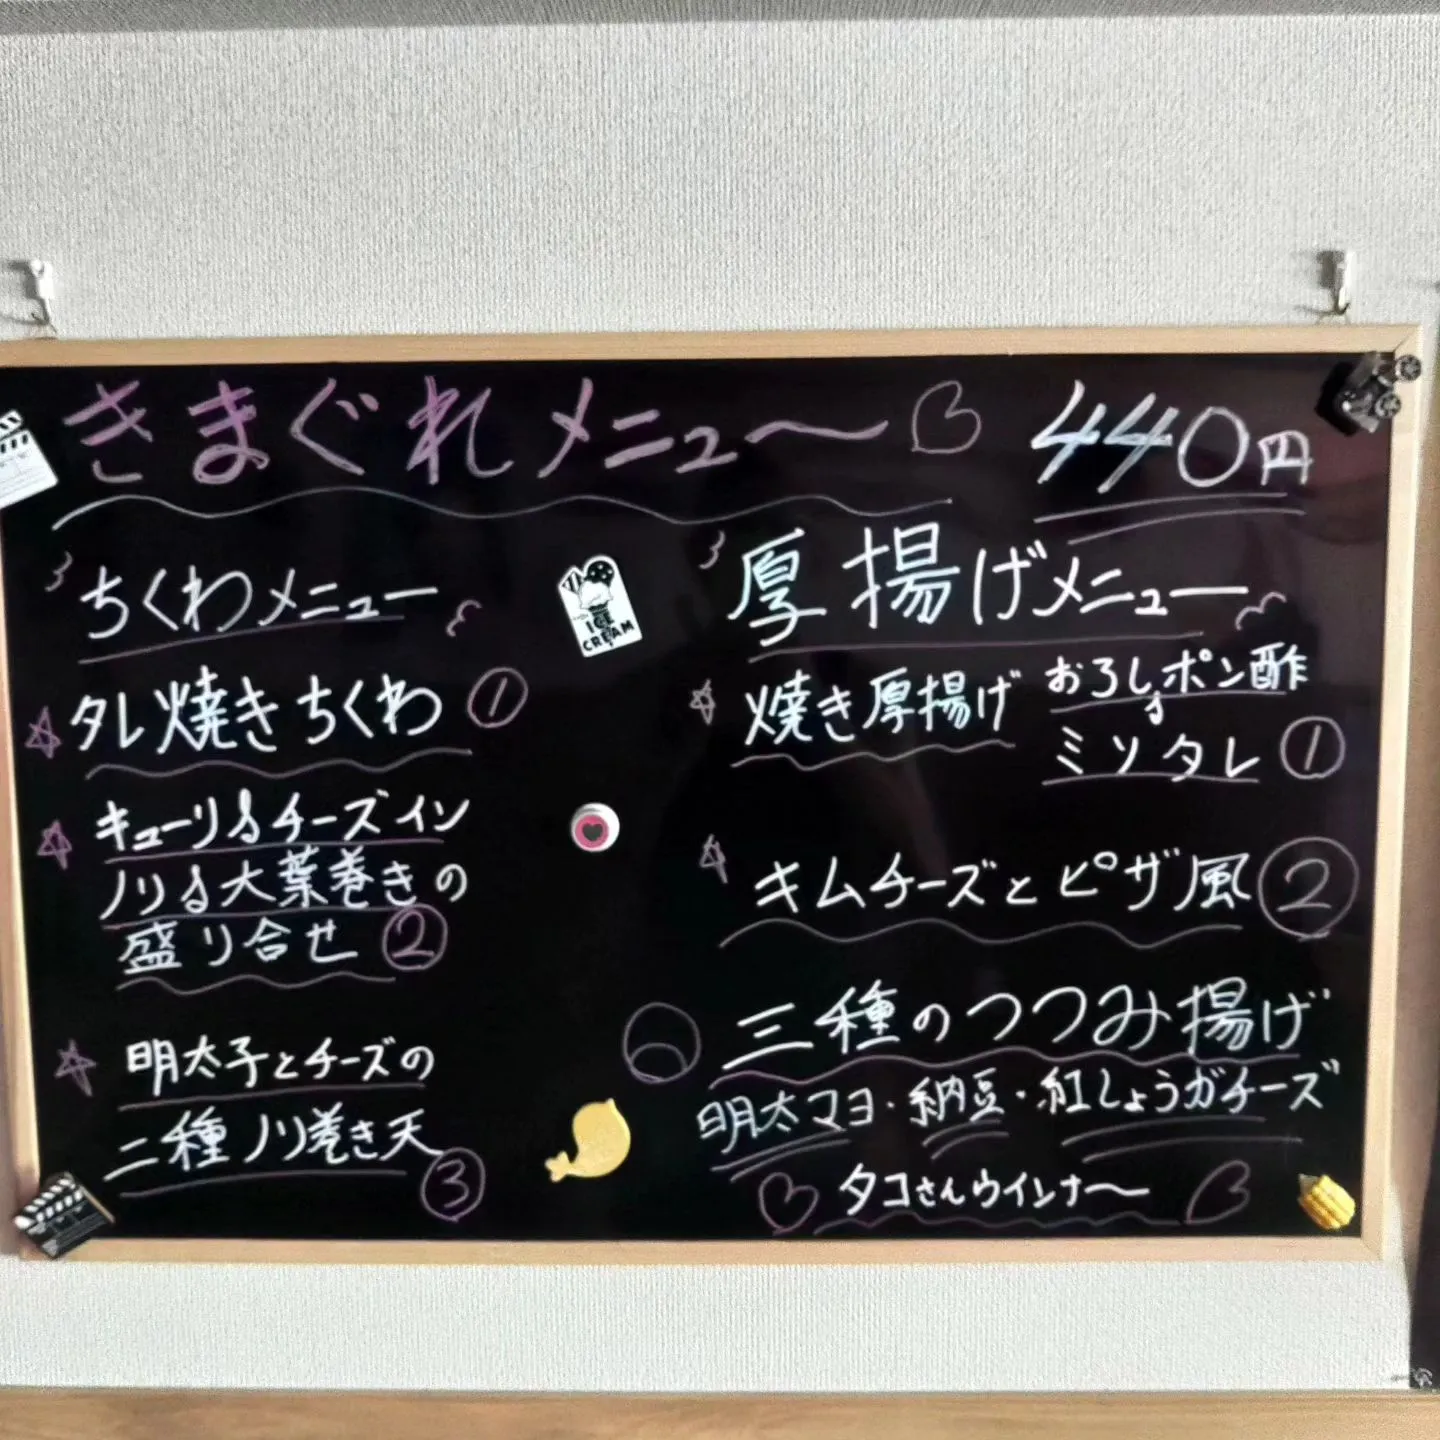 きまぐれメニュ〜
440円
ちくわメニュー
タレ焼きちくわ ①
キューリ&チーズイン
ノリ&大葉巻きの
盛り合せ ②
明太子とチーズの
二種ノリ巻き天
③
ICE
CREAM
厚揚げメニュー
焼き厚揚げ
おろしポン酢
ミソタレ ①
キムチーズとピザ風 ②
三種のつつみ揚げ
明太マヨ・納豆・紅しょうがチーズ
タコさんウインナ〜